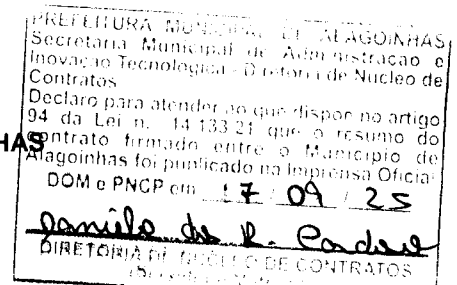 PREFEITURA MUNICIPAL DE ALAGOINHAS
Secretaria Municipal de Administracao e
Inovação Tecnologica - Diretoria de Nucleo de
Contratos
Declaro para atender ao que dispor no artigo
94 da Lei n. 14.133-21 que o resumo do
contrato firmado entre o Municipio de
HAS
Alagoinhas foi punlicado na Imprensa Oficial
DOM e PNCP em 17 / 09 / 25
do R.
DIRETORIA DE NUCLEO DE CONTRATOS